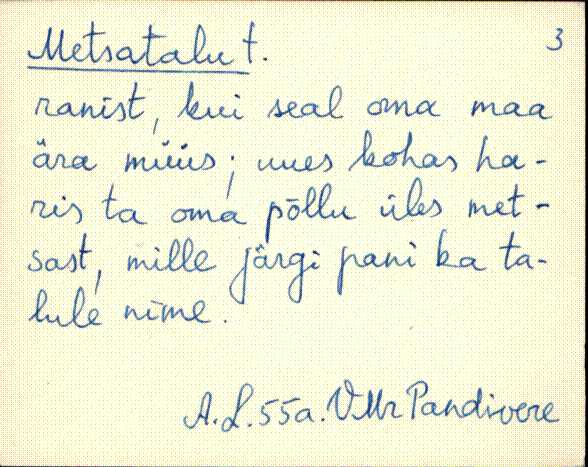 Metsatalu t.
3
ranist, kui seal oma maa
ära müüs; uues kohas ha-
ris ta oma põllu üles met-
sast, mille järgi pani ka ta-
lule nime.
A.L. 55a. VMr Pandivere